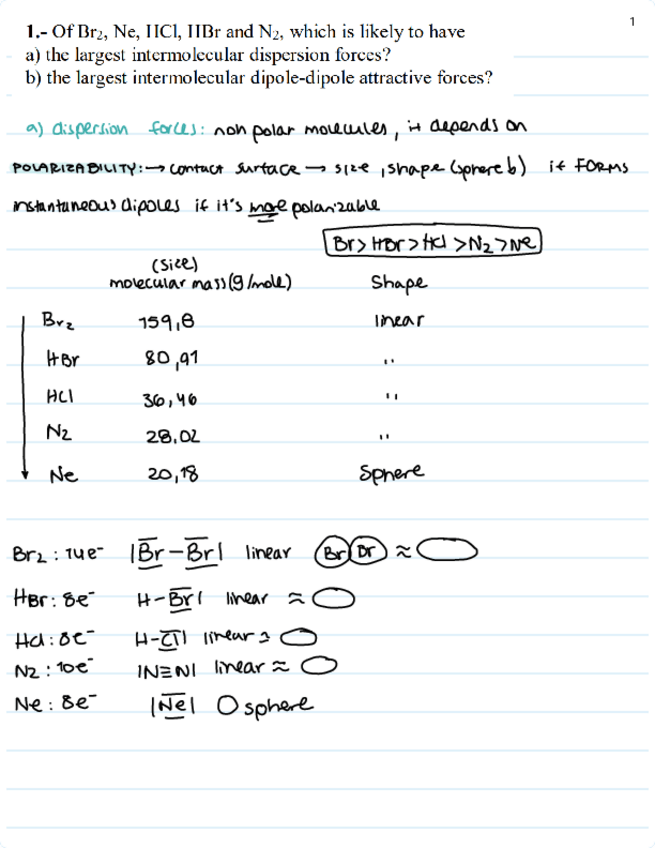 1
1.- Of Br₂, Ne, HCl, HBr and N₂, which is likely to have
a) the largest intermolecular dispersion forces?
b) the largest intermolecular dipole-dipole attractive forces?
a) dispersion forces: non polar molecules, it depends on
POLARIZABILITY: → contact surface → size, shape (sphere b) it FORMS
instantaneous dipoles if it's more polarizable
Br > HBr > HCl > N₂ > Ne
(size)
molecular mass (g/mole) Shape
Br₂ 159,8 linear
HBr 80,91 "
HCl 36,46 "
N₂ 28,02 "
Ne 20,18 Sphere
Br₂ : 14e⁻ |Br-Br| linear Br Br ≈
HBr : 8e⁻ H-Br| linear ≈
HCl : 8e⁻ H-Cl| linear ≈
N₂ : 10e⁻ |N≡N| linear ≈
Ne : 8e⁻ |Ne| sphere